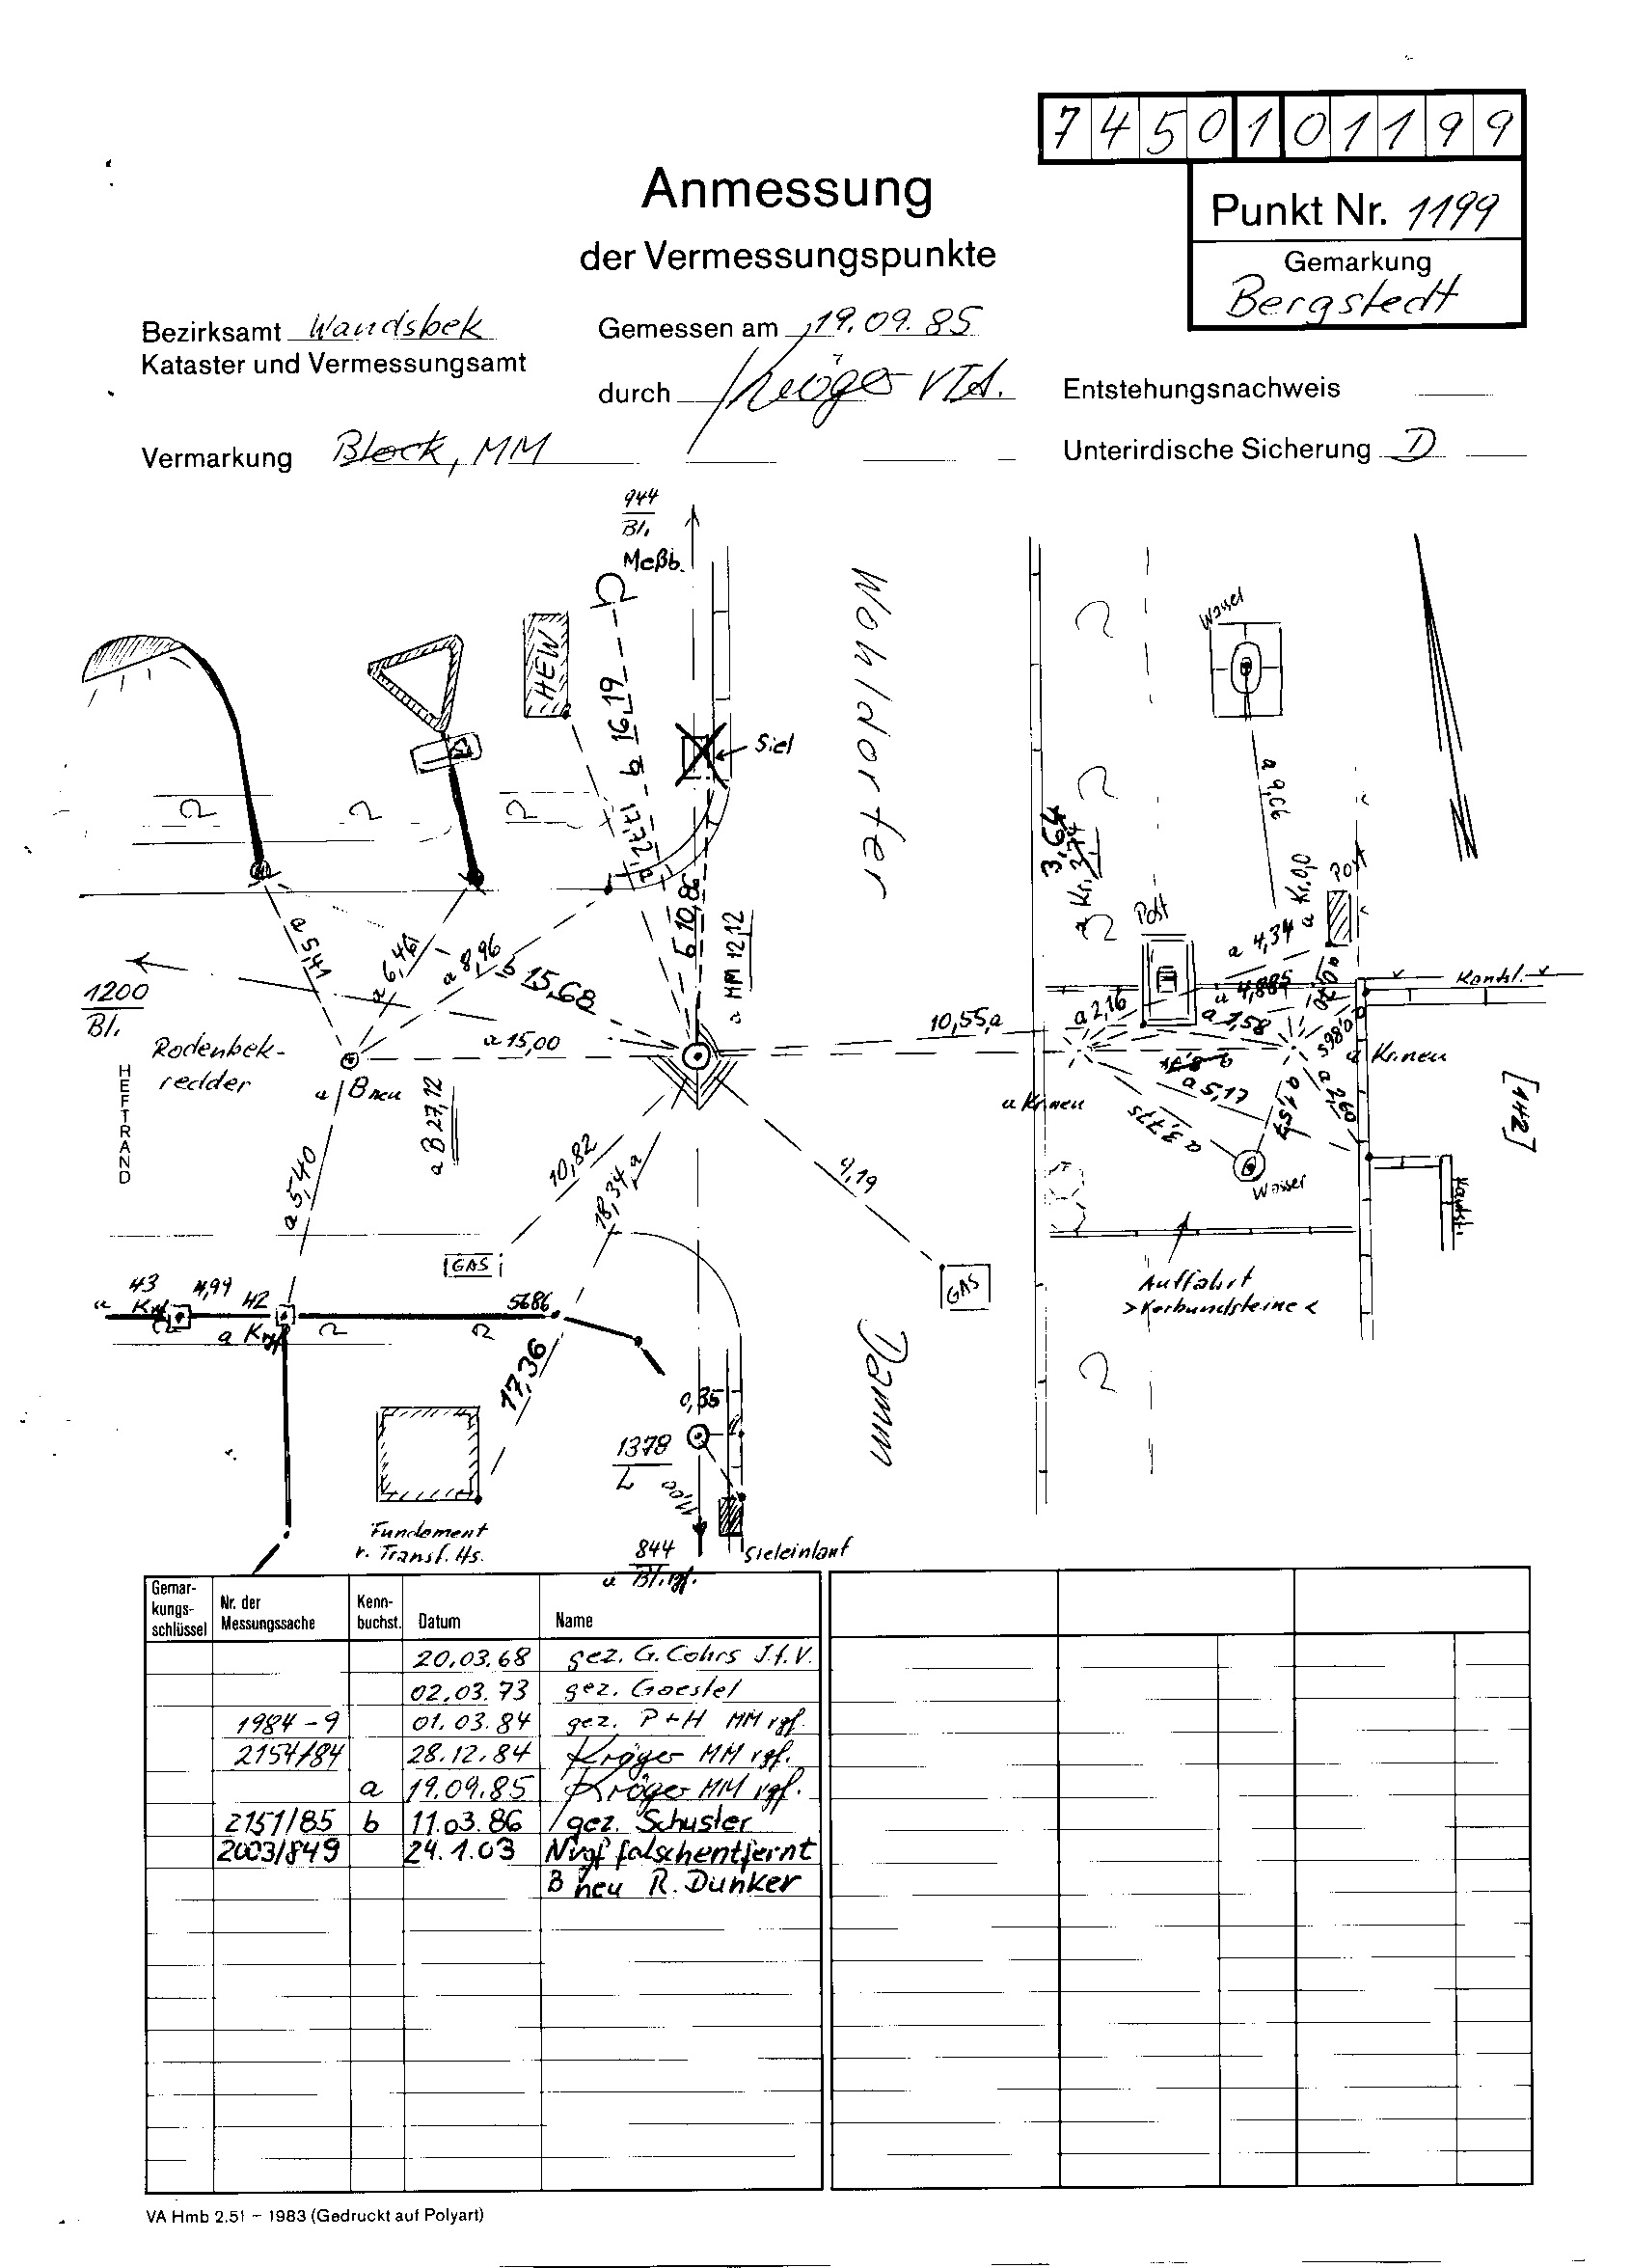 7450101199
Anmessung
der Vermessungspunkte
Punkt Nr. 1199
Gemarkung
Bergstedt
Bezirksamt Wandsbek
Kataster und Vermessungsamt
Gemessen am 19.09.85
durch Kröger VTA.
Entstehungsnachweis
Vermarkung Block, MM
Unterirdische Sicherung D
944
Bl.
Meßb.
HEW
Siel
Wohldorfer
Damm
Wasser
b 16,19
a 9,66
3,64
a Kr. 3,74
Post
Post
b 10,86
a MM 12,12
a 5,41
a 6,46
a 8,96
b 15,68
a 4,34
a 4,885
a 2,16
a 1,58
Kantst.
1200
Bl.
Rodenbek-
redder
HEFTRAND
a 15,00
10,55 a
a B neu
a B 27,12
a Kr. neu
a Kr. neu
a 5,17
a 3,775
[142]
Wasser
Kantst.
a 5,40
10,82
18,34 a
9,19
GAS
GAS
Auffahrt
>Verbundsteine<
43
4,99
42
5686
17,36
0,35
1378
L
11,00
Fundament
v. Transf. Hs.
844
a Bl. rgf.
Sieleinlauf
Gemar-
kungs-
schlüssel
Nr. der
Messungssache
Kenn-
buchst.
Datum
Name
20.03.68 gez. G. Cohrs J.f.V.
02.03.73 gez. Goestel
1984-9 01.03.84 gez. P+H MM rgf.
2154/84 28.12.84 Kröger MM rgf.
a 19.09.85 Kröger MM rgf.
2151/85 b 11.03.86 gez. Schuster
2003/849 24.1.03 Nrgf falsch entfernt
B neu R. Dunker
VA Hmb 2.51 – 1983 (Gedruckt auf Polyart)